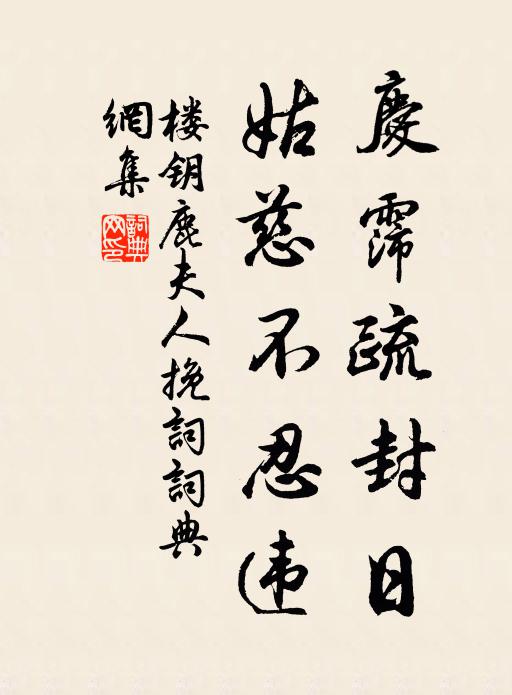 慶霈疏封日
姑慈不忍违
楼钥鹿夫人挽詞詞典
網集
詞典網印